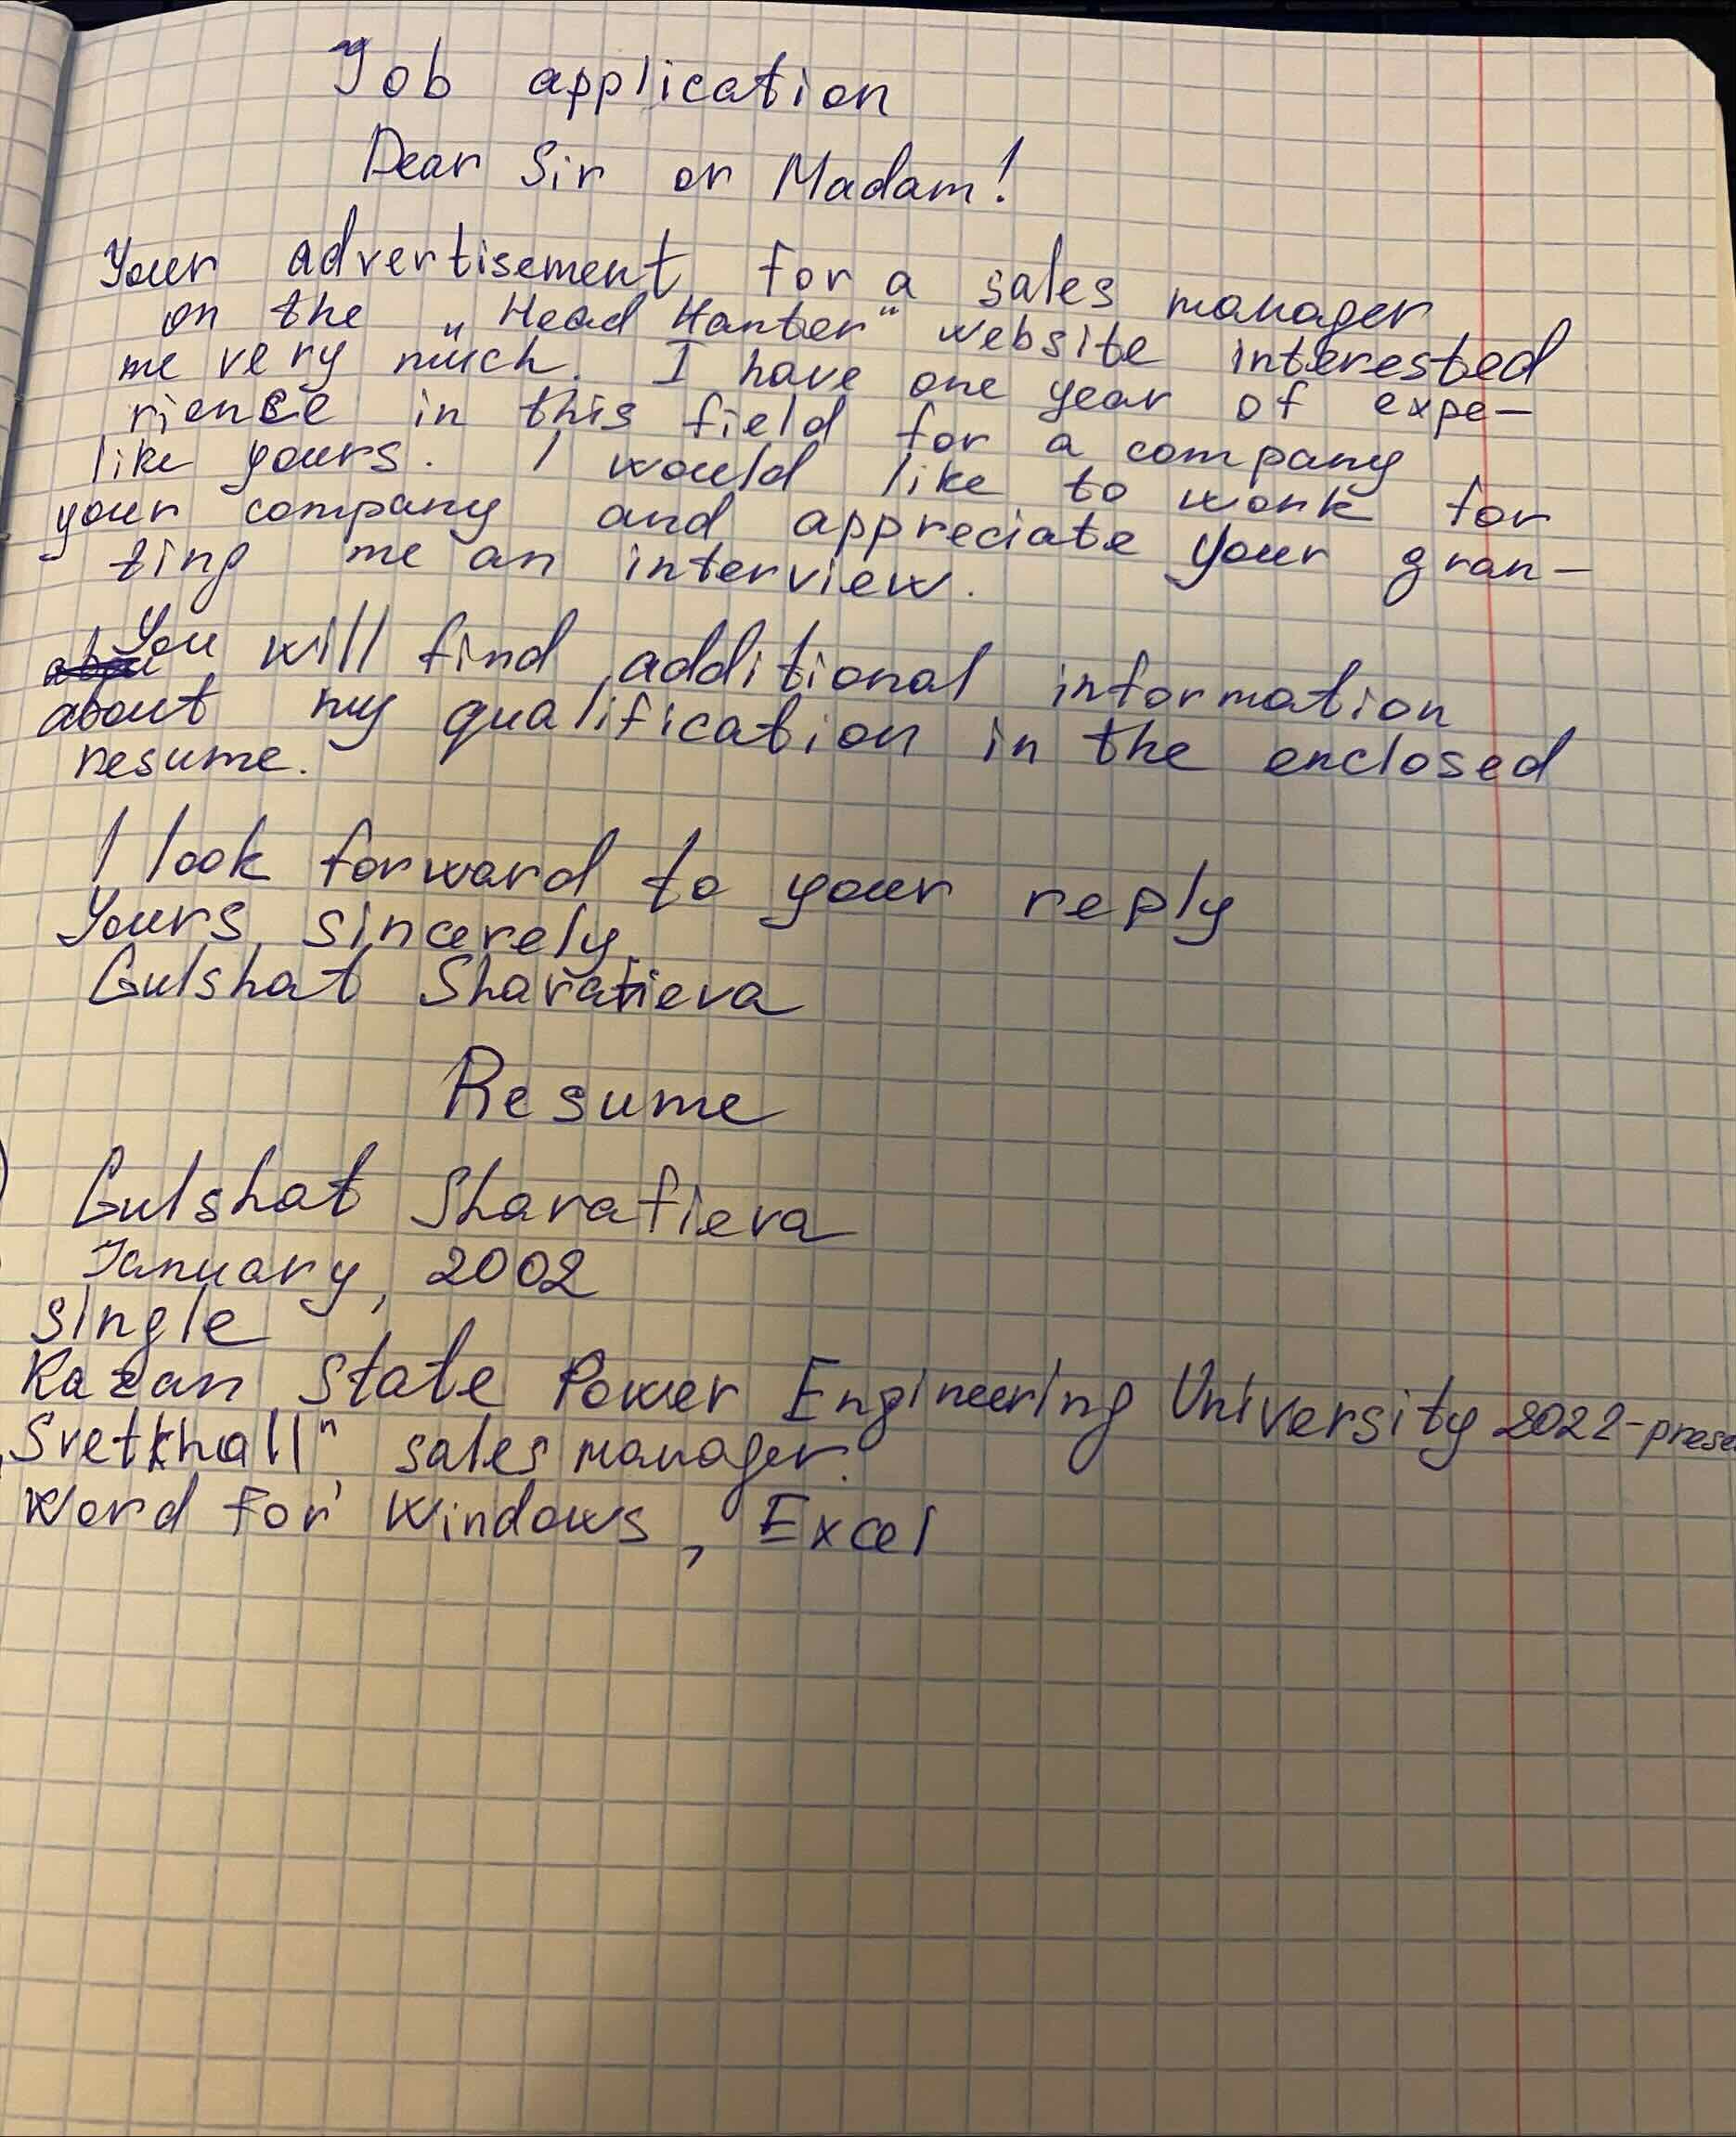 Job application
Dear Sir or Madam!
Your advertisement for a sales manager
on the „Head Hanter" website interested
me very much. I have one year of expe-
rience in this field for a company
like yours. I would like to work for
your company and appreciate your gran-
ting me an interview.
You will find additional information
about my qualification in the enclosed
resume.
I look forward to your reply
Yours sincerely,
Gulshat Sharafieva
Resume
Gulshat Sharafieva
January, 2002
single
Kazan State Power Engineering University 2022-prese
„Svetkhall" sales manager.
Word for Windows, Excel